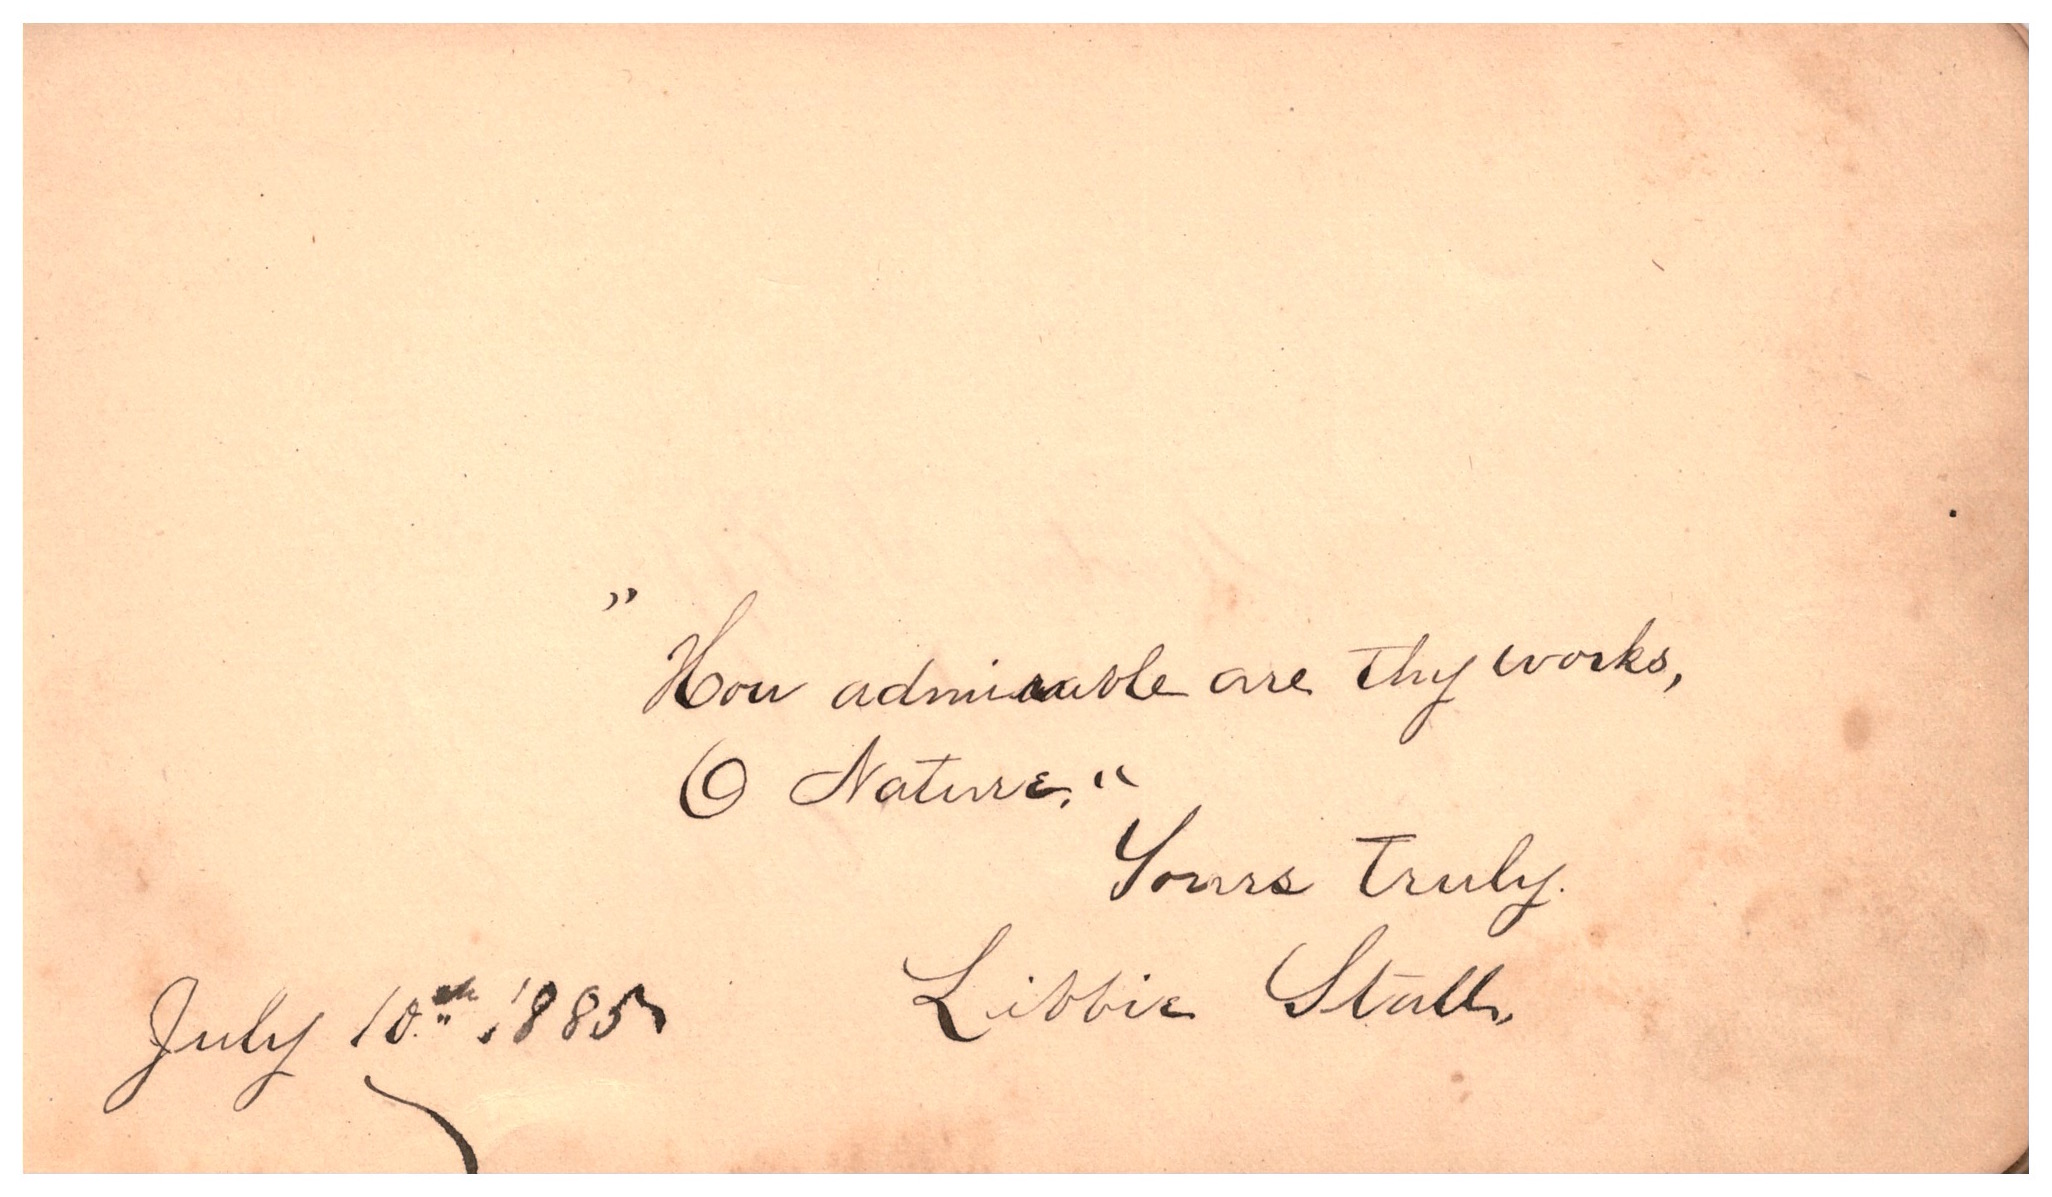 "How admirable are thy works,
O Nature."
Yours truly.
Libbie Stall.
July 10th, 1885